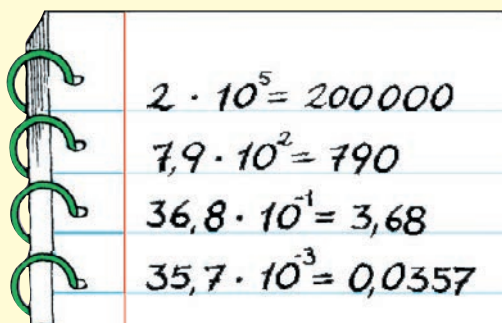 2 · 10⁵ = 200000
7,9 · 10² = 790
36,8 · 10⁻¹ = 3,68
35,7 · 10⁻³ = 0,0357